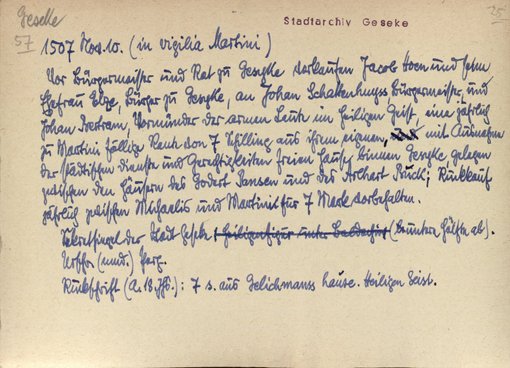 Geseke
57
Stadtarchiv Geseke
25
1507 Nov. 10. (in vigilia Martini)
Vor Bürgermeister und Rat zu Geseke verkaufen Jacob Hoen und seine
Ehefrau Else, Bürger zu Geseke, an Johan Schattenhuyss Bürgermeister und
Johan Bertram, Vormünder der armen Leute im heiligen Geist, eine jährlich
zu Martini fällige Rente von 7 Schilling aus ihrem eigenen, mit Ausnahme
der städtischen Dienste und Gerechtigkeiten freien Hause binnen Geseke gelegen
zwischen den Häusern des Godert Jansen und des Rück; Rückkauf
jährlich zwischen Michaelis und Martini für 7 Mark vorbehalten.
Sekretsiegel der Stadt Geseke (Heiligenfigur unter Baldachin) (untere Hälfte ab).
Urschr. (mnd.) Perg.
Rückschrift (A. 18. Jhs.): 7 s. aus Gelichmanss hause. Heiligen Geist.